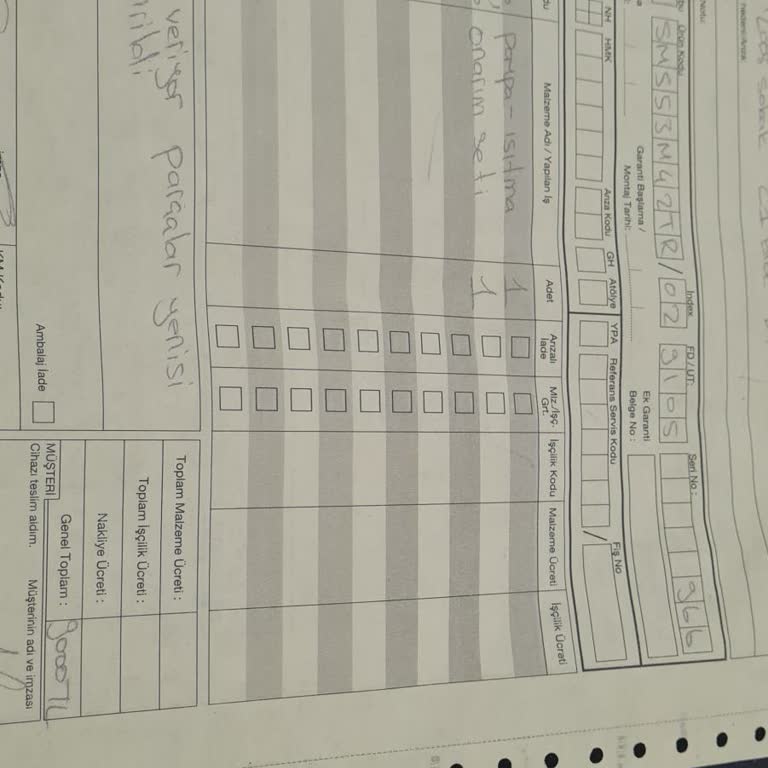 Ürün Kodu Index FD / ÜT: Seri No :
SMS53M42TR/02 9105 966
Garanti Başlama / Montaj Tarihi: Ek Garanti Belge No :
NH HMK Arıza Kodu GH Atölye YPA Referans Servis Kodu Fiş No
Malzeme Adı / Yapılan İş Adet Arızalı İade Mlz./İşç. Grt. İşçilik Kodu Malzeme Ücreti İşçilik Ücreti
pompa - ısıtma 1
onarım seti 1
veriyor parçalar yenisi
Toplam Malzeme Ücreti :
Toplam İşçilik Ücreti :
Nakliye Ücreti :
Genel Toplam : 9000TL
Ambalaj İade
MÜŞTERİ
Cihazı teslim aldım. Müşterinin adı ve imzası